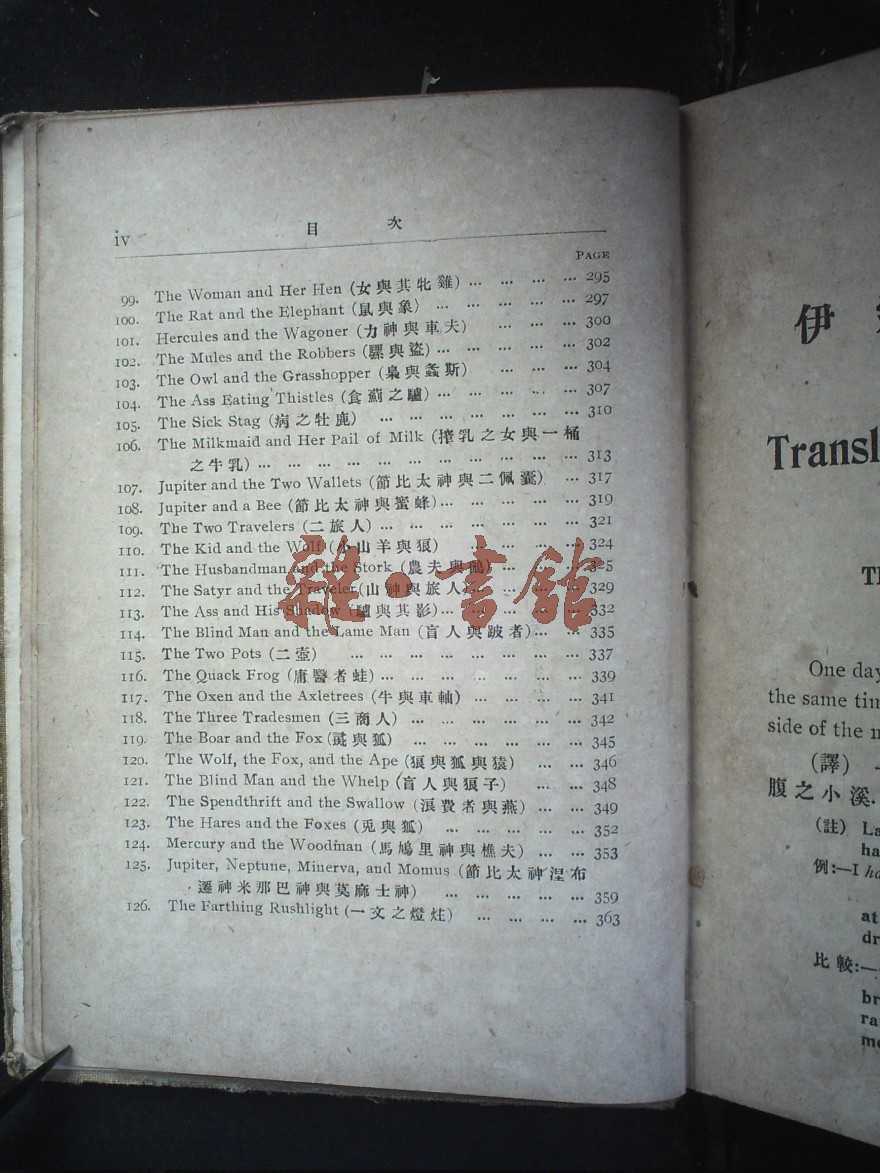 iv 目 次
PAGE
99. The Woman and Her Hen (女與其牝雞) ... ... ... ... 295
100. The Rat and the Elephant (鼠與象) ... ... ... ... 297
101. Hercules and the Wagoner (力神與車夫) ... ... ... 300
102. The Mules and the Robbers (騾與盜) ... ... ... ... 302
103. The Owl and the Grasshopper (梟與螽斯) ... ... ... 304
104. The Ass Eating Thistles (食薊之驢) ... ... ... ... 307
105. The Sick Stag (病之牡鹿) ... ... ... ... ... ... 310
106. The Milkmaid and Her Pail of Milk (搾乳之女與一桶
之牛乳) ... ... ... ... ... ... ... ... ... ... 313
107. Jupiter and the Two Wallets (節比太神與二佩囊) ... 317
108. Jupiter and a Bee (節比太神與蜜蜂) ... ... ... ... 319
109. The Two Travelers (二旅人) ... ... ... ... ... ... 321
110. The Kid and the Wolf (小山羊與狼) ... ... ... ... 324
111. The Husbandman and the Stork (農夫與鸛) ... ... 325
112. The Satyr and the Traveler (山神與旅人) ... ... ... 329
113. The Ass and His Shadow (驢與其影) ... ... ... ... 332
114. The Blind Man and the Lame Man (盲人與跛者) ... ... 335
115. The Two Pots (二壺) ... ... ... ... ... ... ... 337
116. The Quack Frog (庸醫者蛙) ... ... ... ... ... ... 339
117. The Oxen and the Axletrees (牛與車軸) ... ... ... ... 341
118. The Three Tradesmen (三商人) ... ... ... ... ... 342
119. The Boar and the Fox (彘與狐) ... ... ... ... ... 345
120. The Wolf, the Fox, and the Ape (狼與狐與猿) ... ... 346
121. The Blind Man and the Whelp (盲人與狼子) ... ... 348
122. The Spendthrift and the Swallow (浪費者與燕) ... ... 349
123. The Hares and the Foxes (兎與狐) ... ... ... ... ... 352
124. Mercury and the Woodman (馬鳩里神與樵夫) ... ... 353
125. Jupiter, Neptune, Minerva, and Momus (節比太神涅布
遷神米那巴神與莫麻士神) ... ... ... ... ... 359
126. The Farthing Rushlight (一文之燈炷) ... ... ... ... 363
雜·書館
伊
Transl
One day
the same tim
side of the m
(譯)
腹之小溪.
(註) La
ha
例:—I ha
at
dr
比較:—
br
ra
me